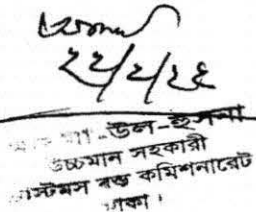 ২২/২/২৬
-উল-হুসনা
উচ্চমান সহকারী
কাস্টমস বন্ড কমিশনারেট
ঢাকা।